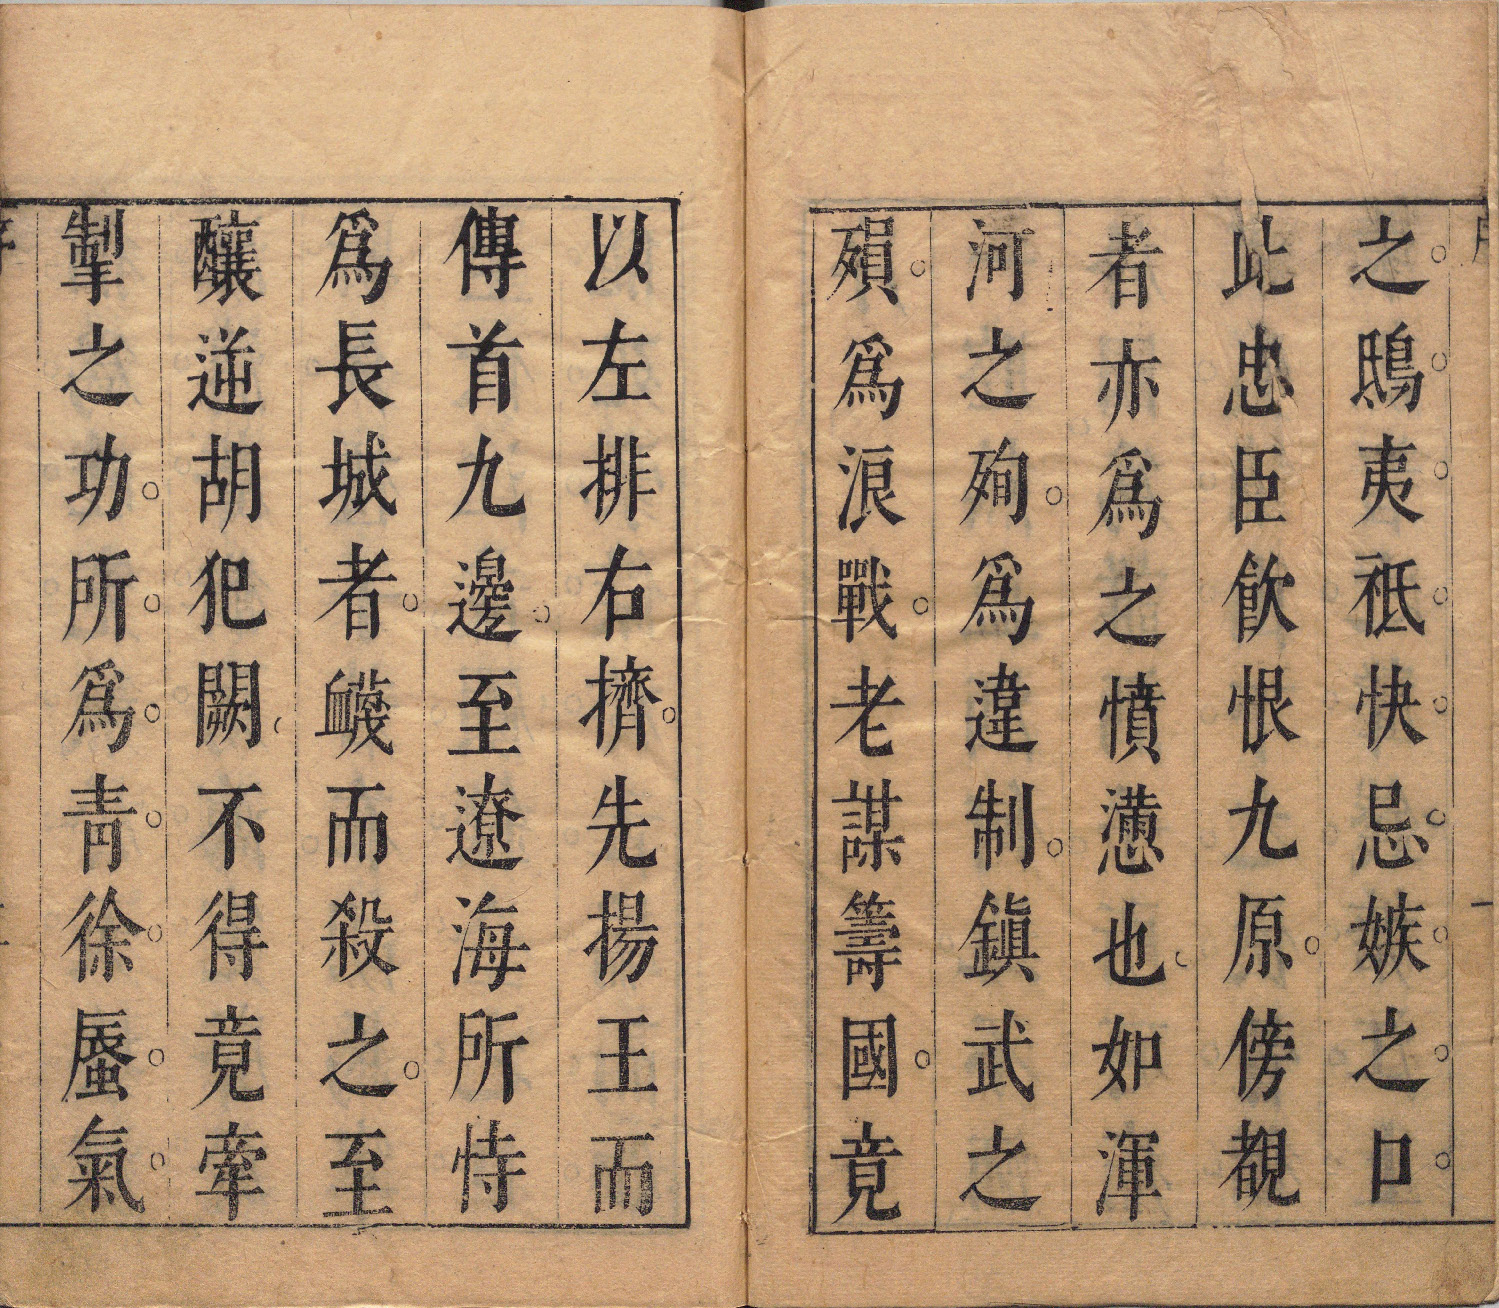 之鴟夷祗快忌嫉之口
此忠臣飲恨九原傍覩
者亦爲之憤懣也如渾
河之殉爲違制鎮武之
殞爲浪戰老謀籌國竟
以左排右擠先揚王而
傳首九邊至遼海所恃
爲長城者衊而殺之至
釀逆胡犯闕不得竟牽
掣之功所爲青徐蜃氣